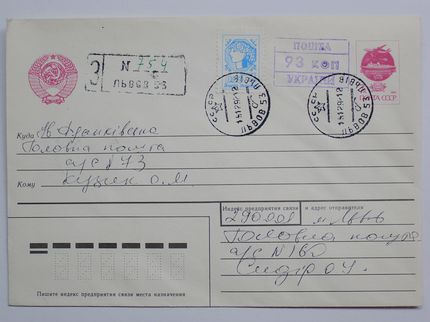 З
N 754
ЛЬВОВ 53
ПОШТА
93 КОП
УКРАЇНИ
ПОЧТА СССР
СССР
ЛЬВОВ 53
Куда
Ів Франківськ
Головна пошта
а/с №73
Кому
Индекс предприятия связи и адрес отправителя
290001 м Львів
Головна пошта
а/с №160
Сидор О.
Пишите индекс предприятия связи места назначения